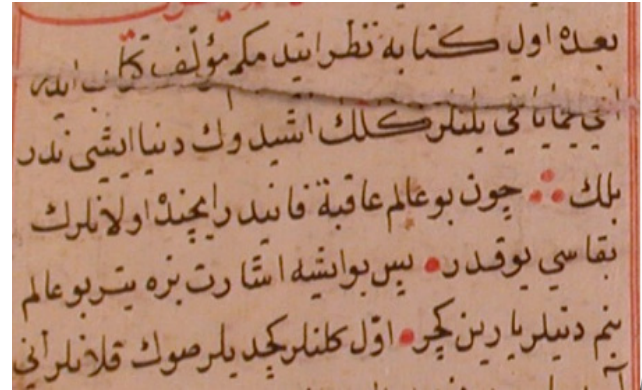 بعده اول كتابه نظر ايتدمكه مؤلف كتاب ايله
بلنلر كلك اشيدوك دنيا ايشى ندر
بلك ∴ چون بو عالم عاقبة فانيدر ايچنده اولانلرك
بقاسي يوقدر • پس بو ايشه اشارت بزه يتر بو عالم
بنم دينلر يارين كچر • اوّل كلنلر كچديلر صوك قلانلر آني